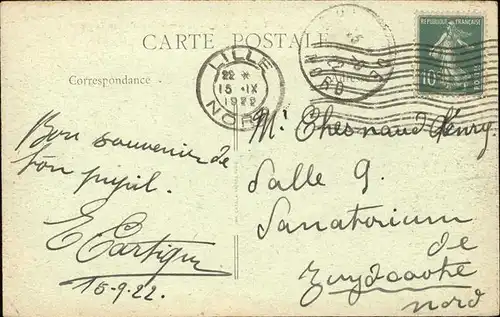 CARTE POSTALE
Correspondance
Adresse
LILLE
22 *
15 - IX
1922
NORD
REPUBLIQUE FRANÇAISE
10
POSTES
Bon souvenir de
ton pupil.
E Cartigny
15-9.22.
Mr Chesnaud Henry
Salle 9.
Sanatorium
de
Zuydcoote
Nord